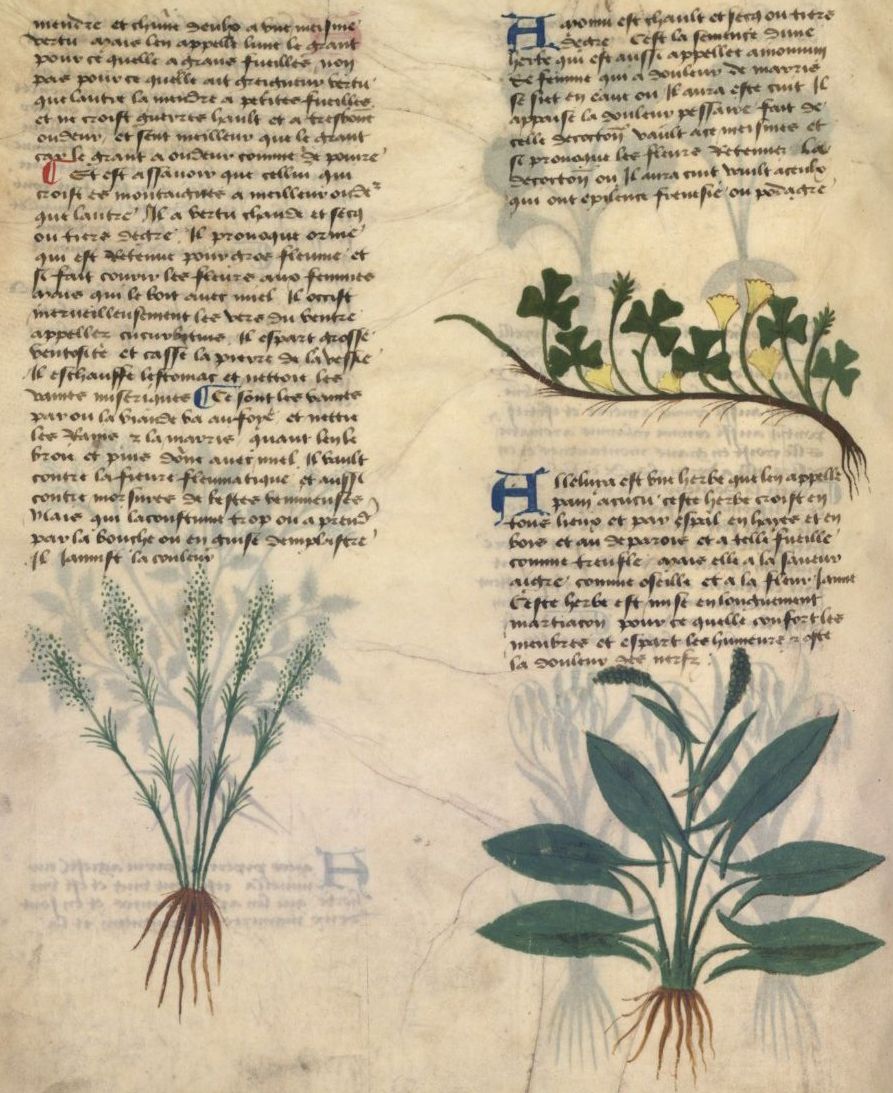 mendre et chascune deulx a une meisme
vertu mais len appelle lune le grant
pour ce quelle a grans fueilles non
pas pour ce quelle ait greigneur vertu
que lautre la mendre a petites fueilles
et ne croist guerres hault et a tresbone
oudeur et sent meilleur que le grant
car le grant a oudeur comme de poivre
Et est assavoir que cellui qui
croist es montaignes a meilleur oudeʳ
que lautre Il a vertu chaude et seche
ou tiers degre Il provoque orine
qui est Retenue pour gros fleume et
si fait courir les fleurs aux femmes
mais qui le boit avec miel Il occist
merveilleusement les vers du ventre
appellez cucurbitins Il espart grosse
ventosite et casse la pierre de la vessie
Il eschauffe lestomac et nettoie les
vaines miseriques Ce sont les vaines
par ou la viande va au foye et nettie
les Rains ⁊ la marris quant len le
broie et puis donne avec miel Il vault
contre la fievre fleumatique et aussi
contre morsures de bestes venimeuses
Mais qui lacoustume trop ou a prendre
par la bouche ou en guise demplastre
Il jaunist la couleur
Amomu est chault et secq ou tiers
degre Cest la semence dune
herbe qui est aussi appellee amomum
Se femme qui a douleur de marris
se siet en eaue ou Il aura este cuit Il
appaise la douleur pessaire fait de
celle decoction vault a ce meismes et
si provoque les fleurs Retenues La
decoction ou Il aura cuit vault a ceulx
qui ont epilence frenesie ou podagre
Alleluia est une herbe que len appelle
pain cucu ceste herbe croist en
tous lieux et par espcil en hayes et en
bois et au de parois et a telle fueille
comme treufle mais elle a la saveur
aigre comme oseille et a la fleur jaune
Ceste herbe est mise en longuement
martiacon pour ce quelle confort les
menbres et espart les humeurs ⁊ oste
la douleur des nerfz